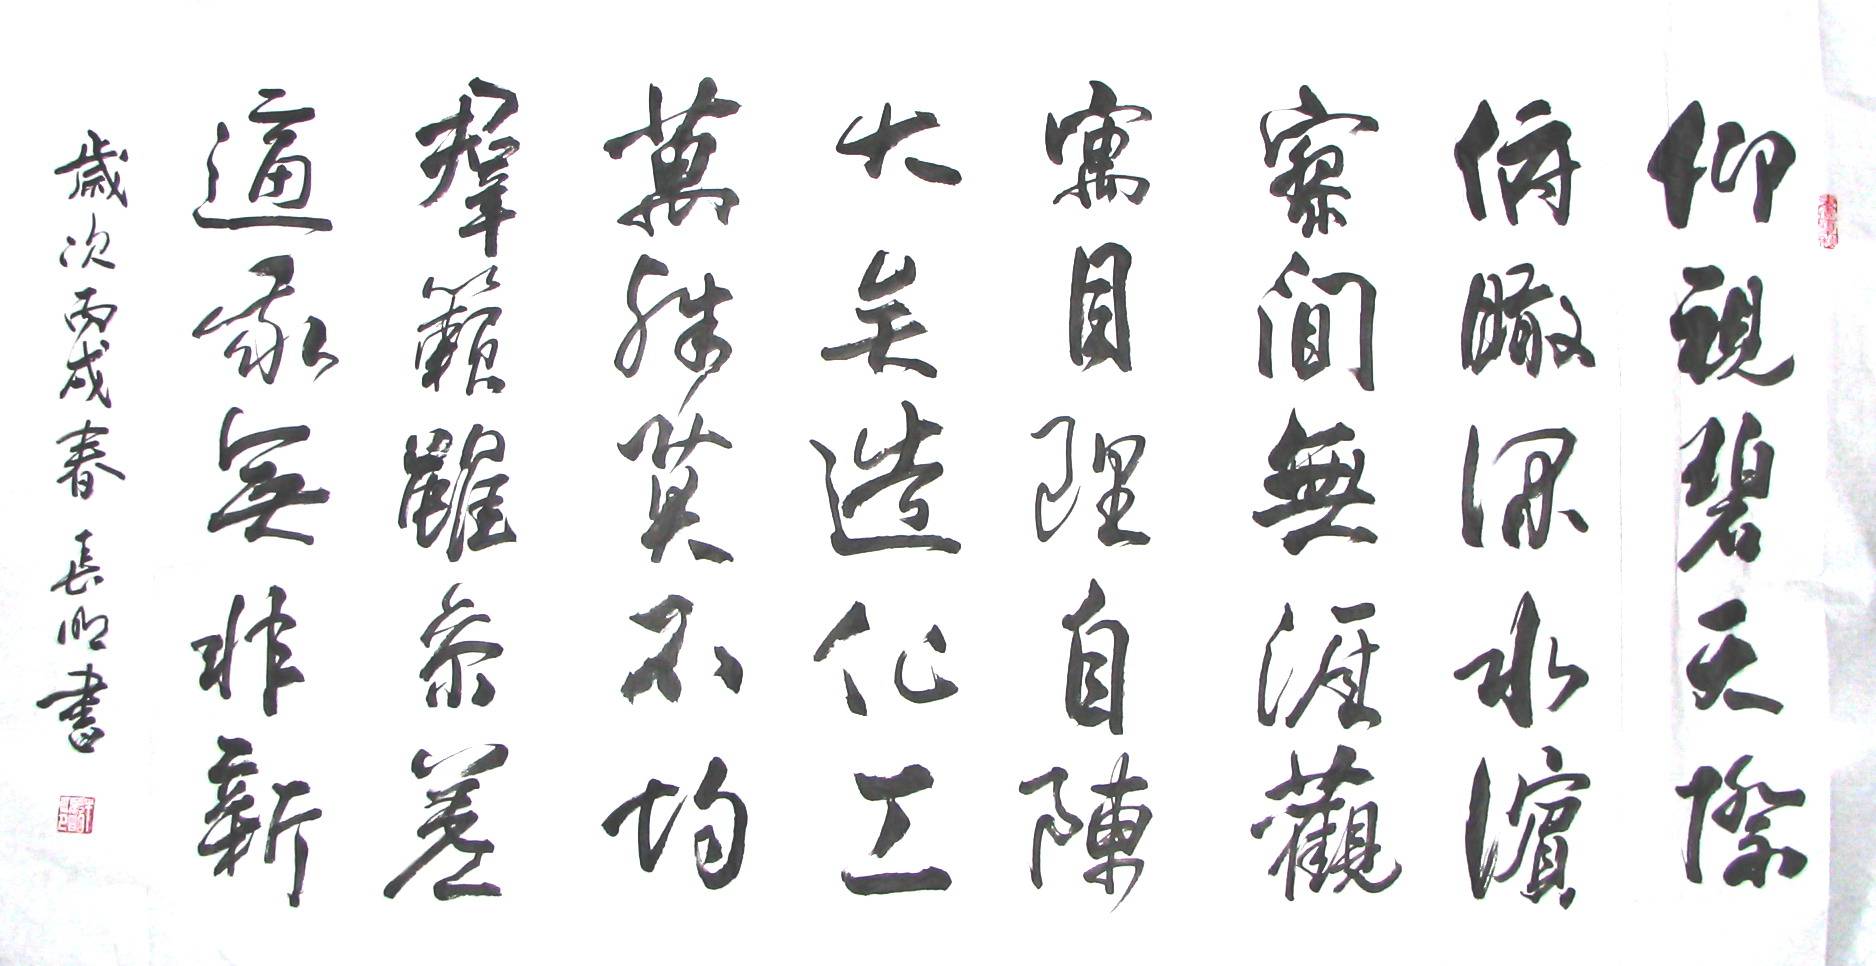 仰視碧天際
俯瞰淥水濱
寥間無涯觀
寓目理自陳
大矣造化工
萬殊莫不均
羣籟雖參差
適我無非新
歲次丙戌春 長明書